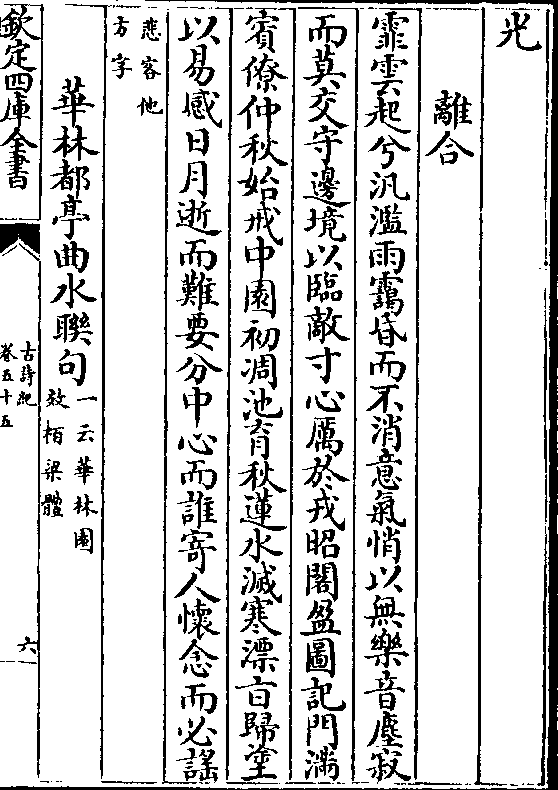 光
離合
霏雲起兮汎濫雨靄昏而不消意氣悄以無樂音塵寂
而莫交守邊境以臨敵寸心厲於戎昭閣盈圖記門滿
賓僚仲秋始戒中園初凋池育秋蓮水滅寒漂旨歸塗
以易感日月逝而難要分中心而誰寄人懷念而必謡
悲客他
方字
華林都亭曲水聯句一云華林園
效栢梁體
欽定四庫全書
古詩紀
卷五十五
六